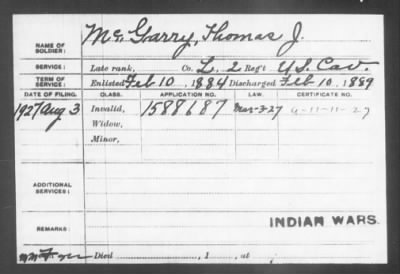 Mc Garry, Thomas J.
NAME OF SOLDIER:
SERVICE: Late rank, Co. L, 2 Reg't U.S. Cav.
TERM OF SERVICE: Enlisted Feb 10, 1884 Discharged Feb 10, 1889
DATE OF FILING. CLASS. APPLICATION NO. LAW. CERTIFICATE NO.
1927 Aug 3 Invalid, 1588687 Mar-3-27 11-11-27
Widow,
Minor,
ADDITIONAL SERVICES:
INDIAN WARS.
REMARKS:
Died , 1 , at